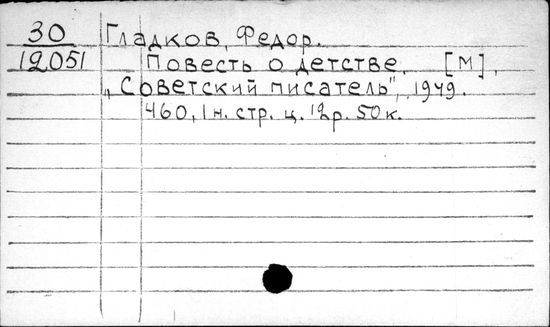 30 Гладков, Федор.
12051 Повесть о детстве. [М],
„Советский писатель", 1949.
460, 1 н. стр. ц. 12 р. 50 к.